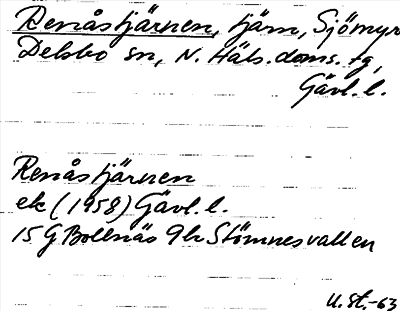 Renåstjärnen, tjärn, Sjömyr
Delsbo sn, N. Häls. doms. tg,
Gävl. l.
Renåstjärnen
ek (1958) Gävl. l.
15 G Bollnäs 9h Stömnesvallen
U. St. -63